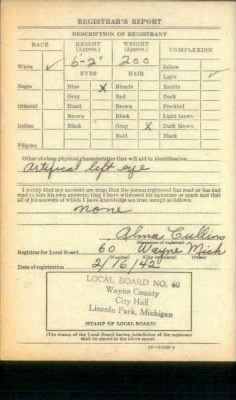 REGISTRAR'S REPORT
DESCRIPTION OF REGISTRANT
RACE HEIGHT (Approx.) WEIGHT (Approx.) COMPLEXION
White ✓ 5-2" 200 Sallow
Light ✓
EYES HAIR
Negro Blue X Blonde Ruddy
Gray Red Dark
Oriental Hazel Brown Freckled
Brown Black Light brown
Indian Black Gray X Dark brown
Bald Black
Filipino
Other obvious physical characteristics that will aid in identification
Artifical left eye
I certify that my answers are true; that the person registered has read or has had
read to him his own answers; that I have witnessed his signature or mark and that
all of his answers of which I have knowledge are true, except as follows:
none
Alma Cullins
(Signature of registrar)
Registrar for Local Board 60 Wayne Mich
(Number) (City or county) (State)
Date of registration 2/16/42
LOCAL BOARD NO. 60
Wayne County
City Hall
Lincoln Park, Michigan
(STAMP OF LOCAL BOARD)
(The stamp of the Local Board having jurisdiction of the registrant
shall be placed in the above space)